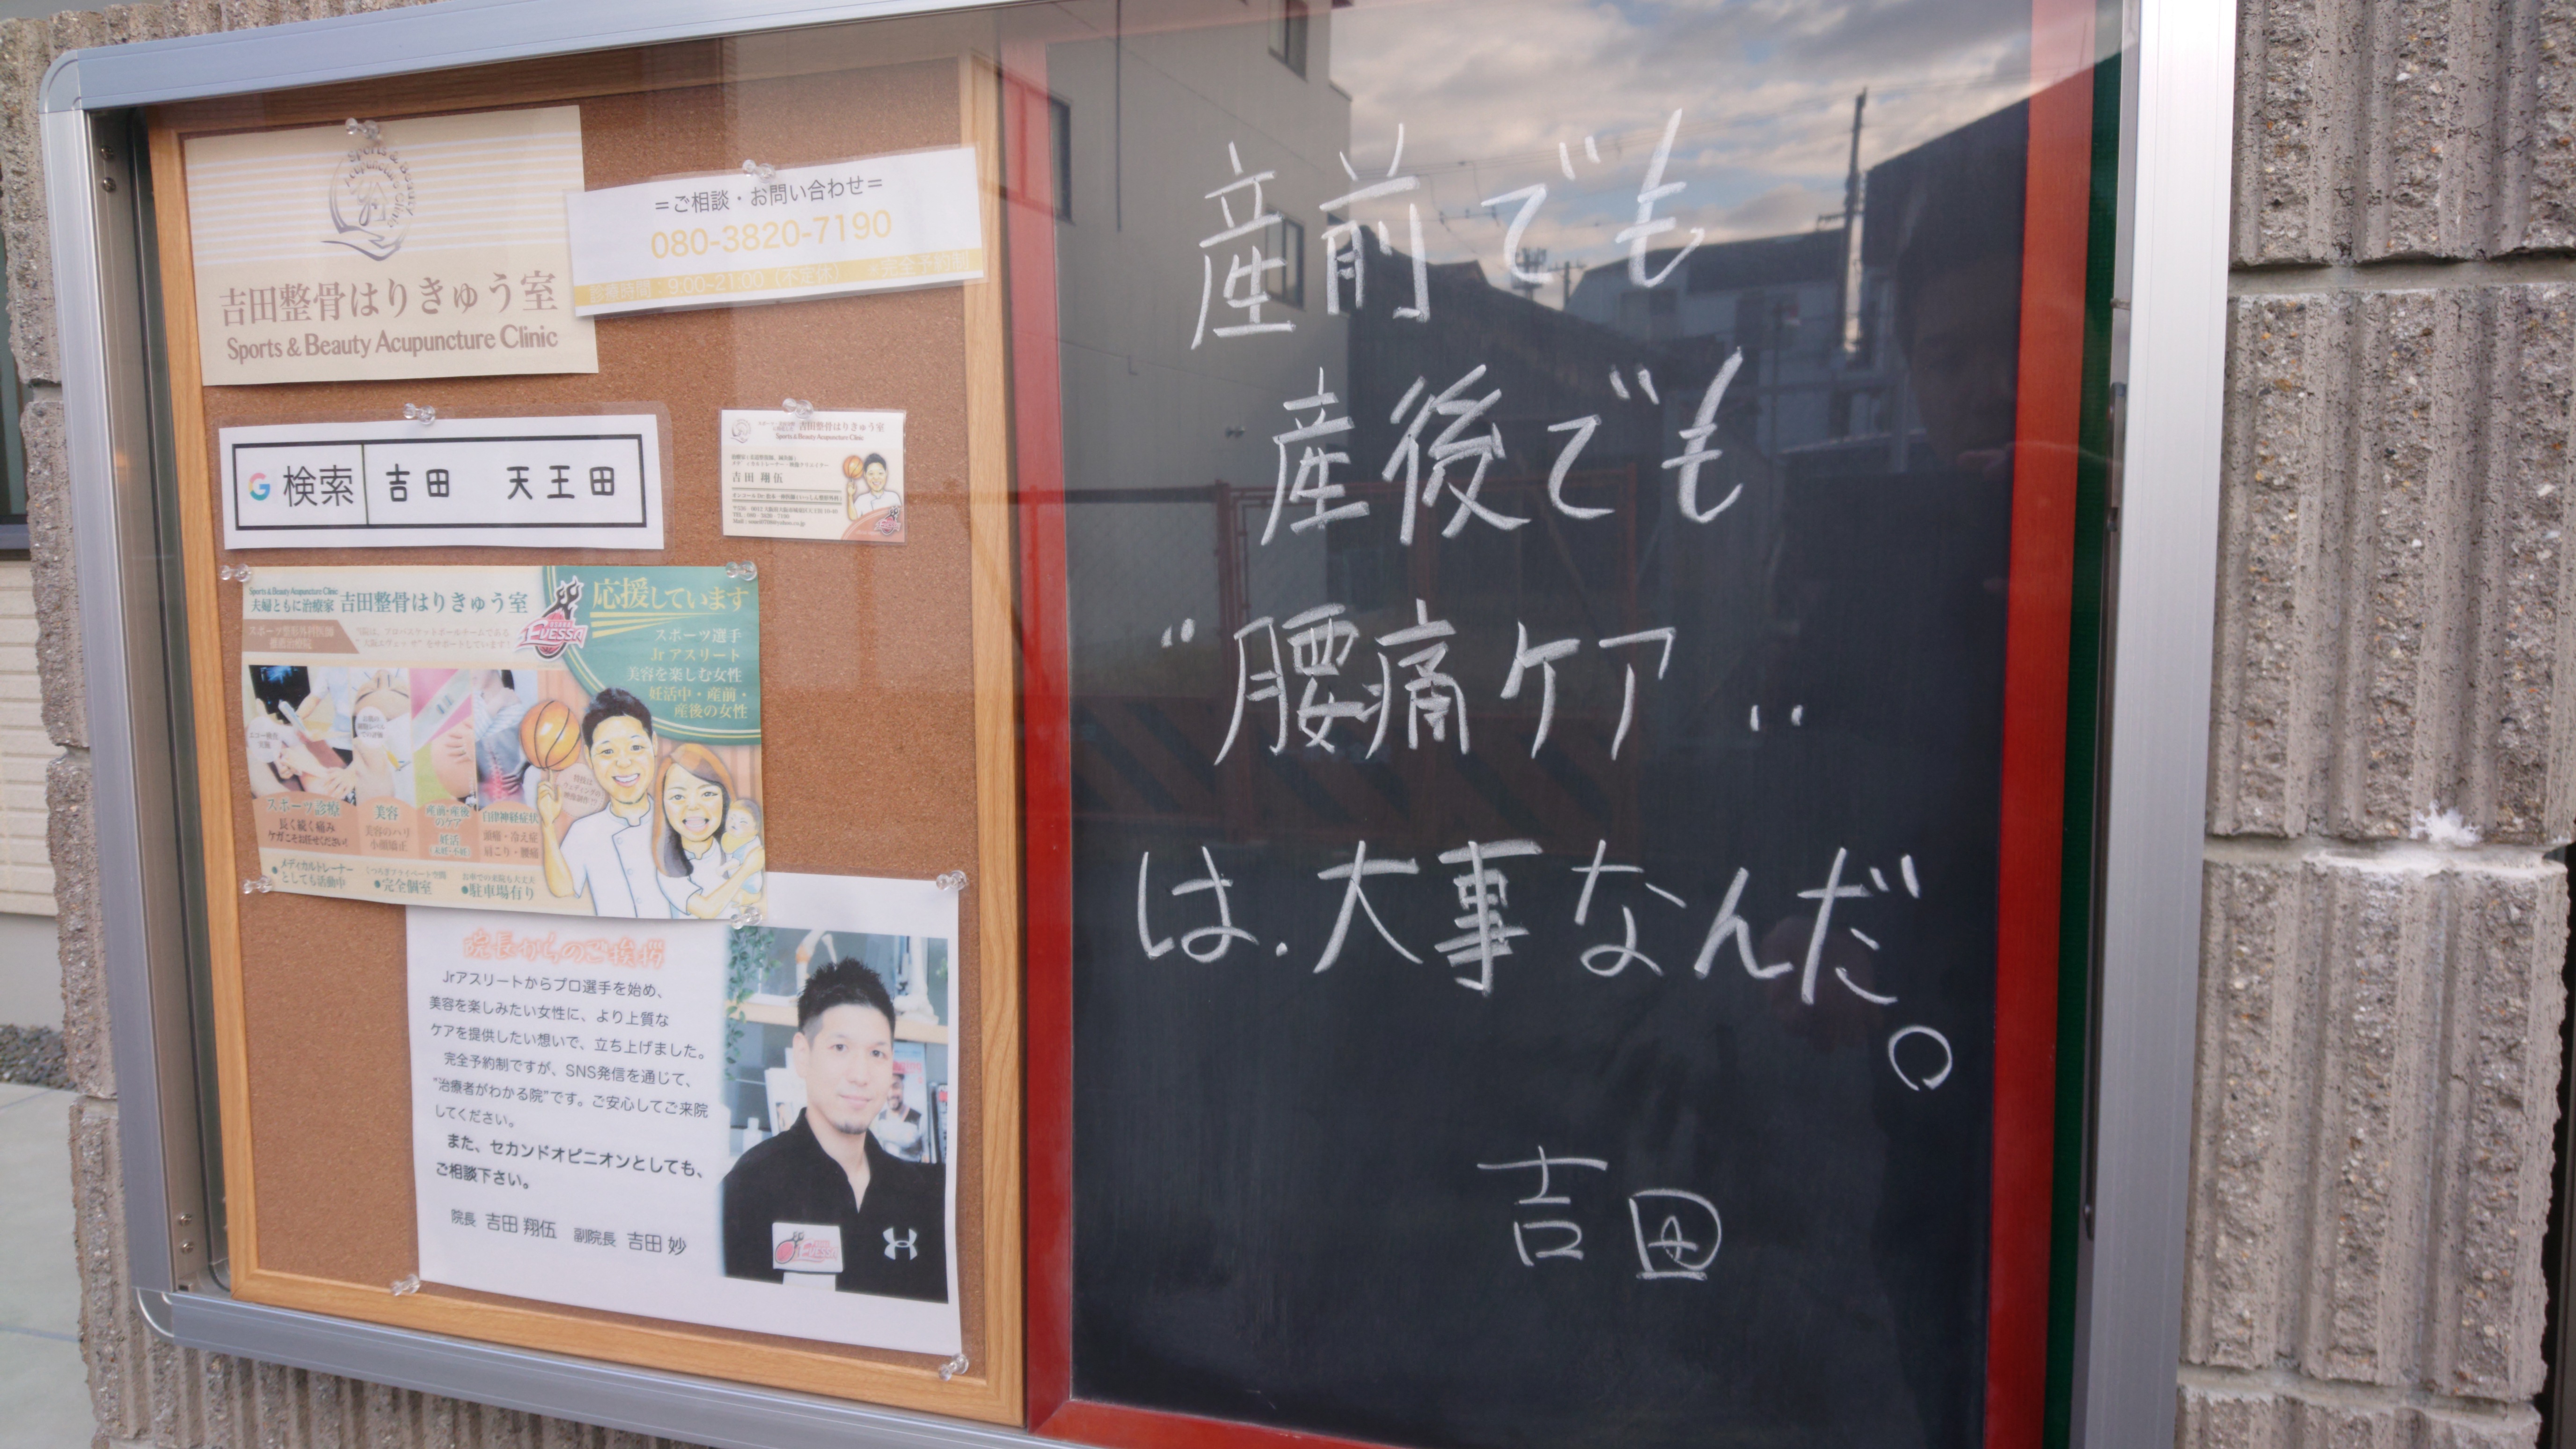 Sports & Beauty
Acupuncture Clinic
吉田整骨はりきゅう室
Sports & Beauty Acupuncture Clinic
=ご相談・お問い合わせ=
080-3820-7190
診療時間:9:00-21:00(不定休) *完全予約制
G 検索 吉田 天王田
吉田整骨はりきゅう室
Sports & Beauty Acupuncture Clinic
吉田 翔伍
Sports & Beauty Acupuncture Clinic
夫婦ともに治療家 吉田整骨はりきゅう室
スポーツ整形外科医師
推薦治療院
EVESSA
応援しています
スポーツ選手
Jr アスリート
美容を楽しむ女性
妊活中・産前・
産後の女性
スポーツ診療
長く続く痛み
ケガこそお任せください!
美容
美容のハリ
小顔矯正
産前・産後
のケア
妊活
自律神経症状
頭痛・冷え症
肩こり・腰痛
●メディカルトレーナー
としても活動中
くつろぎプライベート空間
●完全個室
お車での来院も大丈夫
●駐車場有り
院長からのご挨拶
Jrアスリートからプロ選手を始め、
美容を楽しみたい女性に、より上質な
ケアを提供したい想いで、立ち上げました。
完全予約制ですが、SNS発信を通じて、
"治療者がわかる院"です。ご安心してご来院
してください。
また、セカンドオピニオンとしても、
ご相談下さい。
院長 吉田 翔伍 副院長 吉田 妙
EVESSA
産前でも
産後でも
"腰痛ケア"
は、大事なんだ。
吉田